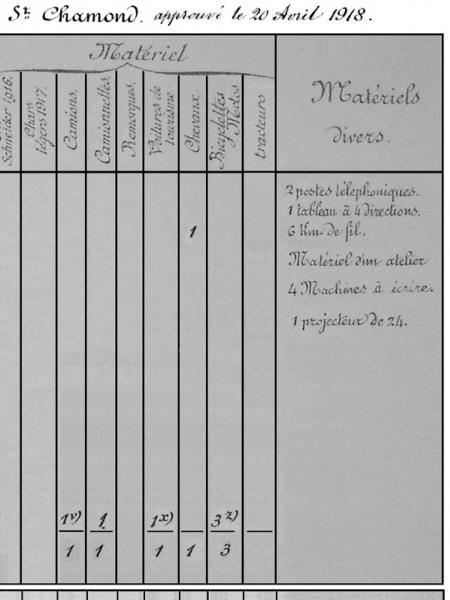 St Chamond. approuvé le 20 Avril 1918.
Matériel
Schneider 1916.
Chars légers 1917.
Camions.
Camionnettes.
Remorques.
Voitures de tourisme
Chevaux.
Bicyclettes Motos
tracteurs
Matériels
divers.
2 postes téléphoniques.
1 tableau à 4 directions.
1
6 Km de fil.
Matériel d'un atelier
4 Machines à écrire.
1 projecteur de 24.
1v) 1 1x) 3z)
1 1 1 1 3